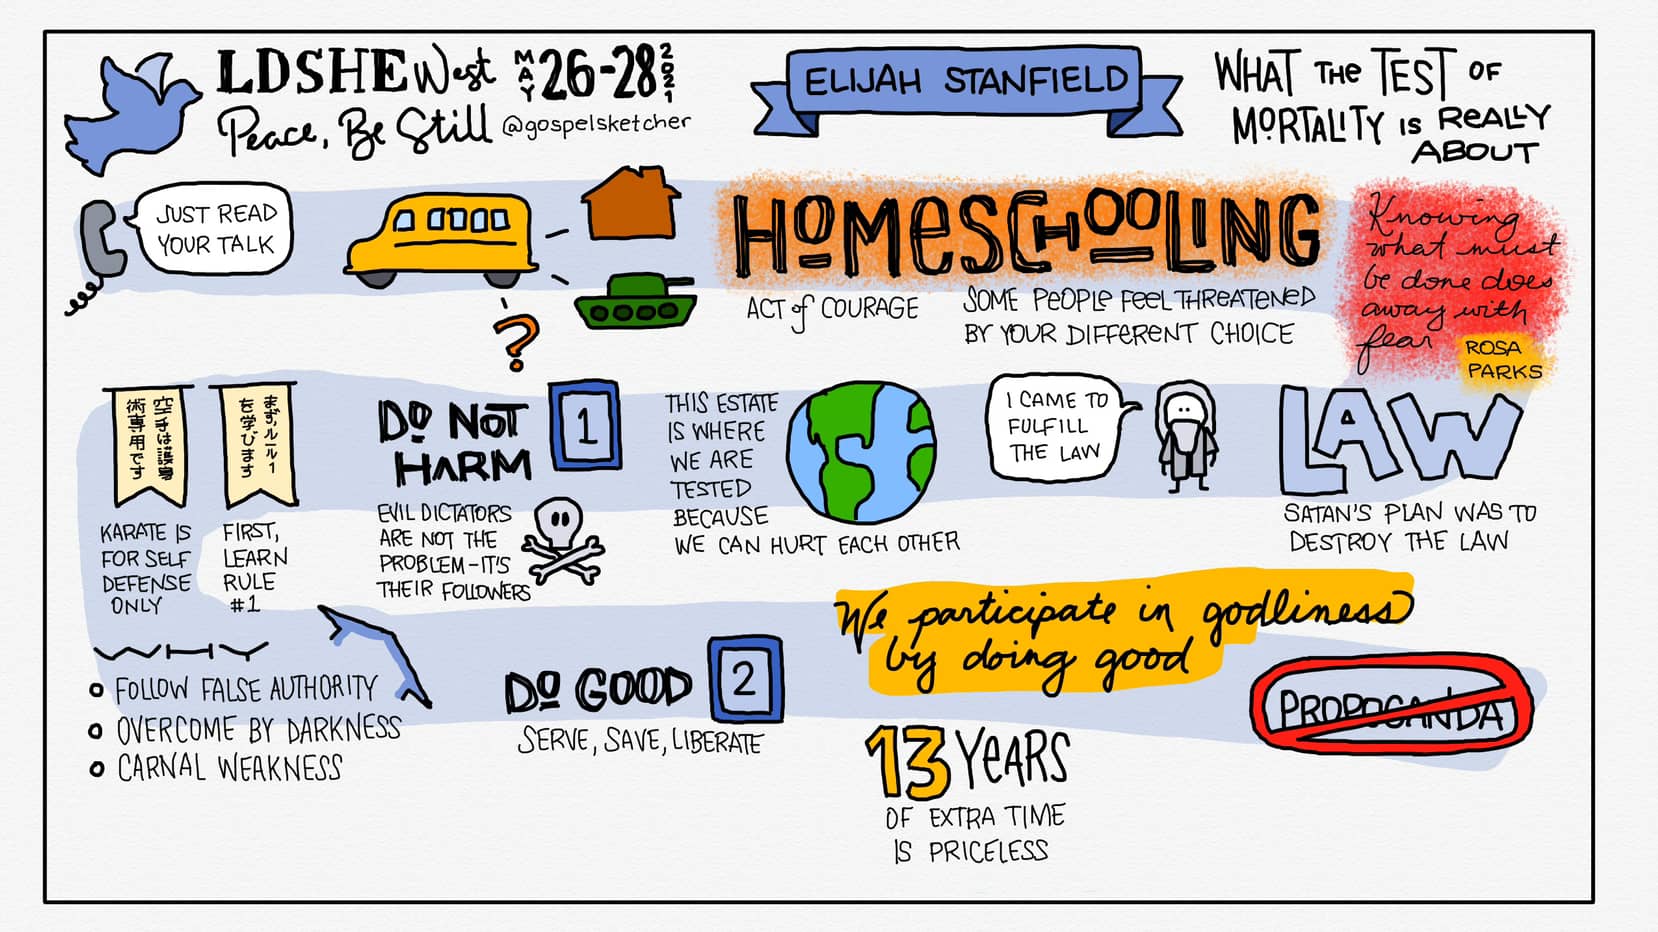 LDSHE West MAY 26-28 2021
Peace, Be Still @gospelsketcher
ELIJAH STANFIELD
WHAT THE TEST OF
MORTALITY IS REALLY
ABOUT
JUST READ
YOUR TALK
?
HOMESCHOOLING
ACT of COURAGE
SOME PEOPLE FEEL THREATENED
BY YOUR DIFFERENT CHOICE
Knowing
what must
be done does
away with
fear
ROSA
PARKS
空手は護身
術専用です
まずルール1
を学びます
KARATE IS
FOR SELF
DEFENSE
ONLY
FIRST,
LEARN
RULE
#1
DO NOT
HARM
1
EVIL DICTATORS
ARE NOT THE
PROBLEM-IT'S
THEIR FOLLOWERS
THIS ESTATE
IS WHERE
WE ARE
TESTED
BECAUSE
WE CAN HURT EACH OTHER
I CAME TO
FULFILL
THE LAW
LAW
SATAN'S PLAN WAS TO
DESTROY THE LAW
WHY
FOLLOW FALSE AUTHORITY
OVERCOME BY DARKNESS
CARNAL WEAKNESS
DO GOOD
2
SERVE, SAVE, LIBERATE
We participate in godliness
by doing good
13 YEARS
OF EXTRA TIME
IS PRICELESS
PROPOGANDA